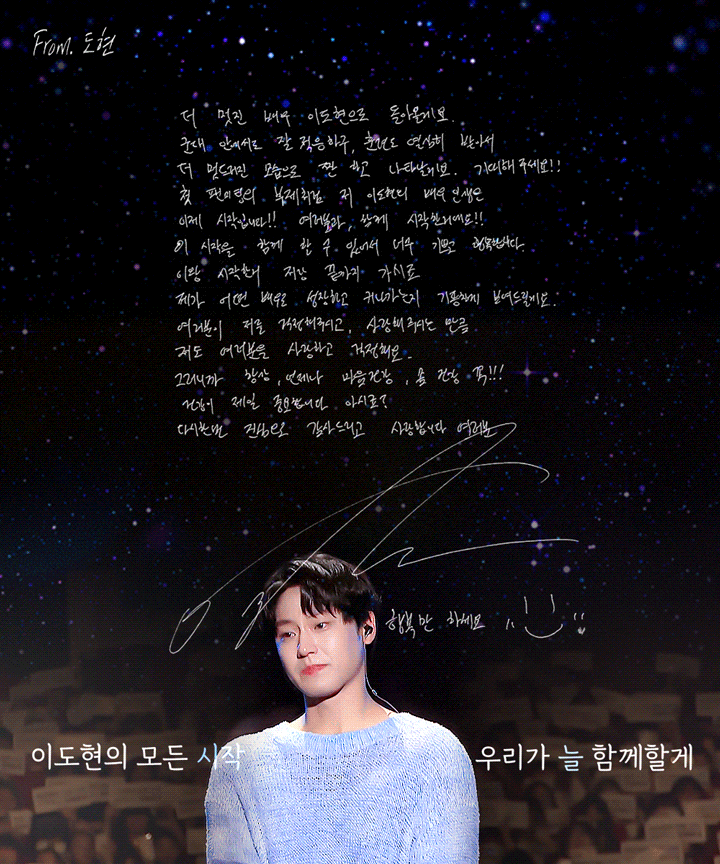 From. 도현
더 멋진 배우 이도현으로 돌아올게요.
군대 안에서도 잘 적응하구, 훈련도 열심히 받아서
더 멋드러진 모습으로 짠 하고 나타날게요. 기대해주세요!!
첫 팬미팅의 부제처럼 저 이도현의 배우 인생은
이제 시작입니다!! 여러분과, 함께 시작한거에요!!
이 시작을 함께 할 수 있어서 너무 기쁘고 행복합니다.
이왕 시작한거 저랑 끝까지 가시죠
제가 어떤 배우로 성장하고 커나가는지 기깔나게 보여드릴게요.
여러분이 저를 걱정해주시고, 사랑해주시는 만큼
저도 여러분을 사랑하고 걱정해요.
그러니까 항상, 언제나 마음건강, 몸 건강 꼭!!!
건강이 제일 중요합니다 아시죠?
다시한번 진심으로 감사드리고 사랑합니다 여러분
행복만 하세요
이도현의 모든 시작 우리가 늘 함께할게